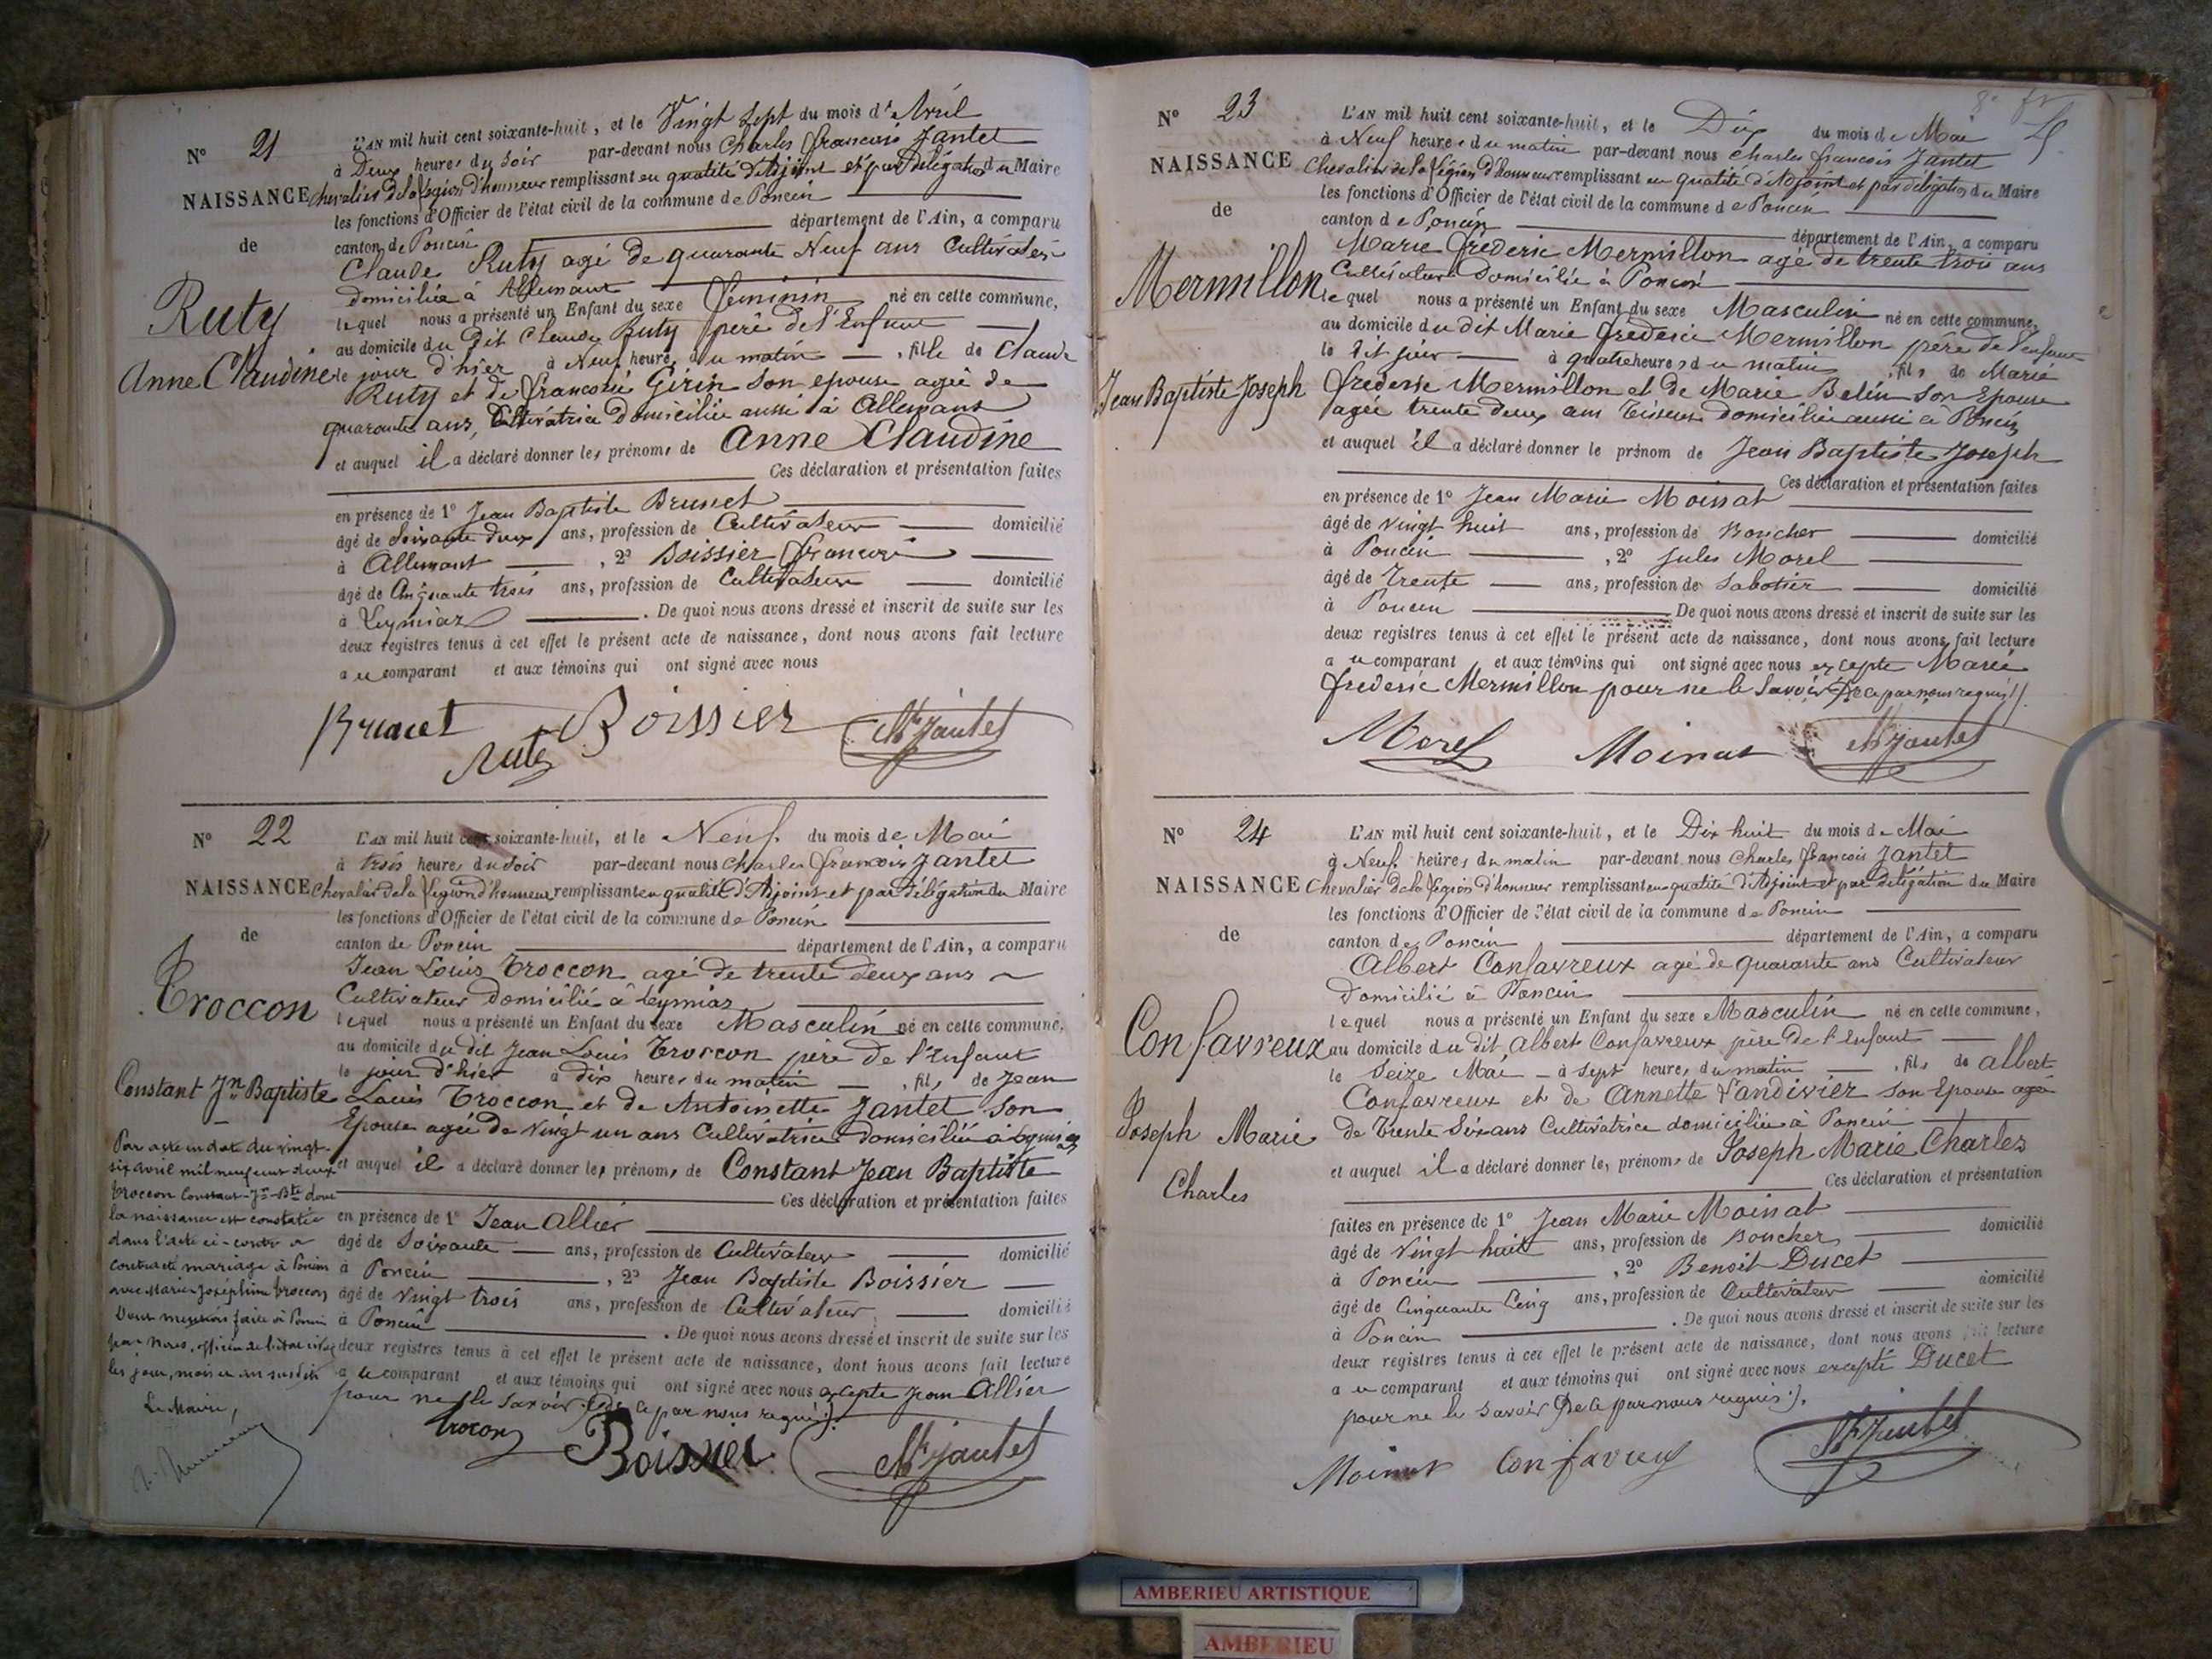 N° 21
NAISSANCE
de
Ruty
Anne Claudine
L'AN mil huit cent soixante-huit, et le Vingt sept du mois d'Avril
à Deux heures du soir par-devant nous Charles françois Jantet
Chevalier de la légion d'honneur remplissant en qualité d'Adjoint et par délégation du Maire
les fonctions d'Officier de l'état civil de la commune de Poncin
canton de Poncin département de l'Ain, a comparu
Claude Ruty agé de quarante Neuf ans Cultivateur
domicilié à Allemant
lequel nous a présenté un Enfant du sexe féminin né en cette commune,
au domicile du dit Claude Ruty père de l'Enfant
le jour d'hier à Neuf heures du matin , fille de Claude
Ruty et de françoise Girin son epouse agée de
quarante ans, Cultivatrice domiciliée aussi à Allemant
et auquel il a déclaré donner les prénoms de Anne Claudine
Ces déclaration et présentation faites
en présence de 1° Jean Baptiste Brunet
âgé de Soixante deux ans, profession de Cultivateur domicilié
à Allemant , 2° Boissier françois
âgé de Cinquante trois ans, profession de Cultivateur domicilié
à Leymiaz . De quoi nous avons dressé et inscrit de suite sur les
deux registres tenus à cet effet le présent acte de naissance, dont nous avons fait lecture
au comparant et aux témoins qui ont signé avec nous
Brunet Boissier Jantet
Ruty
N° 22
NAISSANCE
de
Troccon
Constant Jn Baptiste
L'AN mil huit cent soixante-huit, et le Neuf du mois de Mai
à trois heures du soir par-devant nous Charles françois Jantet
Chevalier de la légion d'honneur remplissant en qualité d'Adjoint et par délégation du Maire
les fonctions d'Officier de l'état civil de la commune de Poncin
canton de Poncin département de l'Ain, a comparu
Jean Louis Troccon agé de trente deux ans
Cultivateur domicilié à Leymiaz
lequel nous a présenté un Enfant du sexe Masculin né en cette commune,
au domicile du dit Jean Louis Troccon père de l'Enfant
le jour d'hier à dix heures du matin , fils de Jean
Louis Troccon et de Antoinette Jantet son
Epouse agée de Vingt un ans Cultivatrice domiciliée à Leymiaz
et auquel il a déclaré donner les prénoms de Constant Jean Baptiste
Ces déclaration et présentation faites
en présence de 1° Jean Allier
âgé de Soixante ans, profession de Cultivateur domicilié
à Poncin , 2° Jean Baptiste Boissier
âgé de Vingt trois ans, profession de Cultivateur domicilié
à Poncin . De quoi nous avons dressé et inscrit de suite sur les
deux registres tenus à cet effet le présent acte de naissance, dont nous avons fait lecture
au comparant et aux témoins qui ont signé avec nous excepté Jean Allier
pour ne le savoir (de ce par nous requis).
Trocon Boissier Jantet
Par acte en date du vingt-
six avril mil neuf cent deux
Troccon Constant-Jn-Bte dont
la naissance est constatée
dans l'acte ci-contre a
contracté mariage à Poncin
avec Marie Joséphine Troccon
Dont mention faite à Poncin
par Nous, officier de l'état civil
les jour, mois et an susdits
Le Maire,
N° 23
NAISSANCE
de
Mermillon
Jean Baptiste Joseph
L'AN mil huit cent soixante-huit, et le Dix du mois de Mai
à Neuf heures du matin par-devant nous Charles françois Jantet
Chevalier de la légion d'honneur remplissant en qualité d'Adjoint et par délégation du Maire
les fonctions d'Officier de l'état civil de la commune de Poncin
canton de Poncin département de l'Ain, a comparu
Marie fréderic Mermillon agé de trente trois ans
Cultivateur domicilié à Poncin
lequel nous a présenté un Enfant du sexe Masculin né en cette commune,
au domicile du dit Marie fréderic Mermillon père de l'enfant
le dit jour à quatre heures du matin , fils de Marie
fréderic Mermillon et de Marie Belin son Epouse
agée trente deux ans Tisseuse domiciliée aussi à Poncin
et auquel il a déclaré donner le prénom de Jean Baptiste Joseph
Ces déclaration et présentation faites
en présence de 1° Jean Marie Moinat
âgé de vingt huit ans, profession de Boucher domicilié
à Poncin , 2° Jules Morel
âgé de Trente ans, profession de Sabotier domicilié
à Poncin . De quoi nous avons dressé et inscrit de suite sur les
deux registres tenus à cet effet le présent acte de naissance, dont nous avons fait lecture
au comparant et aux témoins qui ont signé avec nous excepté Marie
frederic Mermillon pour ne le savoir (de ce par nous requis)
Morel Moinat Jantet
N° 24
NAISSANCE
de
Confavreux
Joseph Marie
Charles
L'AN mil huit cent soixante-huit, et le Dix huit du mois de Mai
à Neuf heures du matin par-devant nous Charles françois Jantet
Chevalier de la légion d'honneur remplissant en qualité d'Adjoint et par délégation du Maire
les fonctions d'Officier de l'état civil de la commune de Poncin
canton de Poncin département de l'Ain, a comparu
Albert Confavreux agé de quarante ans Cultivateur
Domicilié à Poncin
lequel nous a présenté un Enfant du sexe Masculin né en cette commune,
au domicile du dit Albert Confavreux père de l'Enfant
le Seize Mai à sept heures du matin , fils de Albert
Confavreux et de Annette Vandivier son Epouse agée
de Trente Six ans Cultivatrice domiciliée à Poncin
et auquel il a déclaré donner les prénoms de Joseph Marie Charles
Ces déclaration et présentation
faites en présence de 1° Jean Marie Moinat
âgé de Vingt huit ans, profession de Boucher domicilié
à Poncin , 2° Benoit Ducet
âgé de Cinquante Cinq ans, profession de Cultivateur domicilié
à Poncin . De quoi nous avons dressé et inscrit de suite sur les
deux registres tenus à cet effet le présent acte de naissance, dont nous avons fait lecture
au comparant et aux témoins qui ont signé avec nous excepté Ducet
pour ne le savoir (de ce par nous requis).
Moinat Confavreux Jantet
AMBERIEU ARTISTIQUE
AMBERIEU